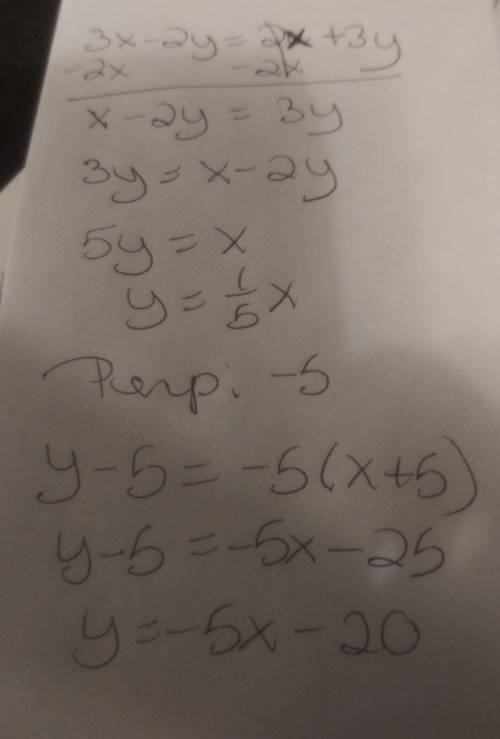 3x-2y = 2x +3y
-2x -2x
x-2y = 3y
3y = x-2y
5y = x
y = 1/5 x
Perp: -5
y-5 = -5(x+5)
y-5 = -5x-25
y = -5x-20